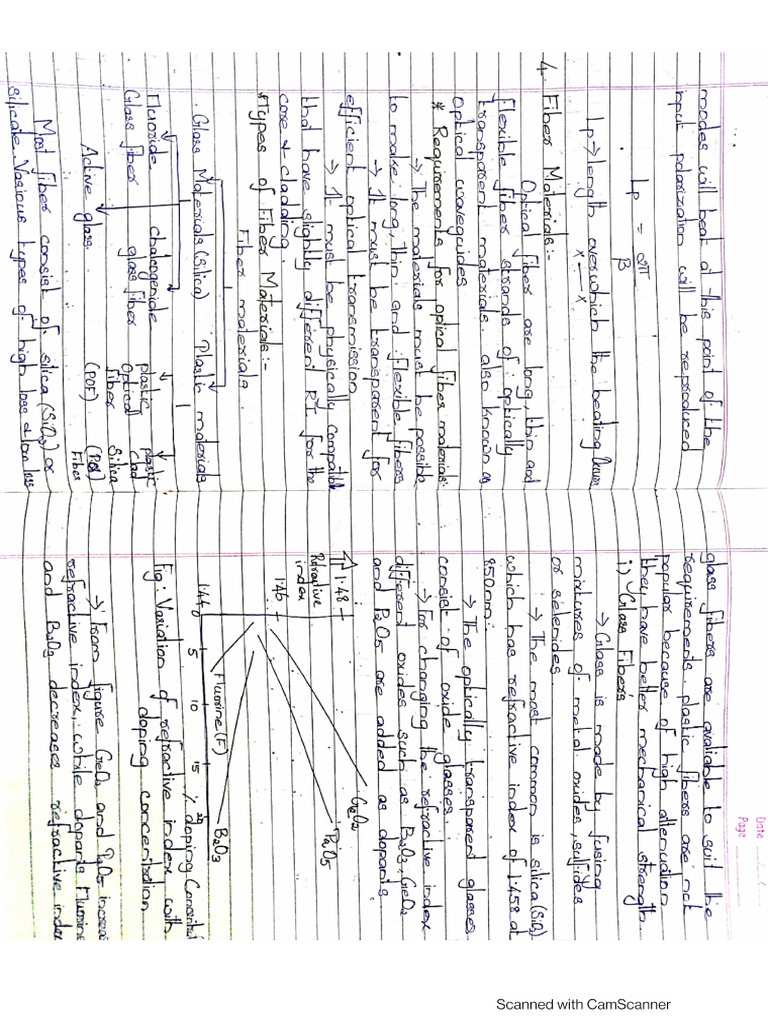 modes will beat at this point of the
input polarization will be reproduced
Lp = 2π
B
Lp → length over which the beating
x — x
4. Fiber Materials:-
Optical fiber are long, thin and
flexible fiber strands of optically
transparent materials also known as
Optical waveguides
* Requirements for optical fiber materials:-
→ The materials must be possible
to make long, thin and flexible fibers
→ It must be transparent for
efficient optical transmission
→ It must be physically compatible
that have slightly different RI for the
core & cladding.
Types of Fiber Materials:-
Fiber materials
Glass Materials (Silica) Plastic materials
Fluoride chalcogenide plastic plastic
Glass fiber glass fiber Optical clad
Fiber Silica
Active glass. (POF) (PCS)
Fiber
Most fiber consist of silica (SiO2) or
silicate. Various types of high loss & low loss
Date
Page
glass fibers are avaliable to suit the
requirements. plastic fibers are not
popular because of high attenuation
they have better mechanical strength.
i) Glass Fibers
→ Glass is made by fusing
mixtures of metal oxides, sulfides
or selenides
→ The most common is silica (SiO2)
which has refractive index of 1.458 at
850nm.
→ The optically transparent glasses
consist of oxide glasses.
→ For changing the refractive index
different oxides such as B2O3, GeO2
and P2O5 are added as dopants
1.48
Refractive
index
1.46
1.44
0 5 10 15 20 % doping
GeO2
P2O5
Fluorine (F)
B2O3
Fig: Variation of refractive index with
doping concentration
→ From figure GeO2 and P2O5 increase
refractive index, while dopants Fluorine
and B2O3 decreases refractive index
Scanned with CamScanner